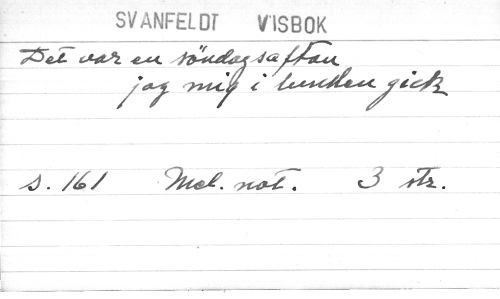 SVANFELDT VISBOK
Det var en söndagsafton
jag mig i lunden gick
s. 161 Mel. not. 3 str.